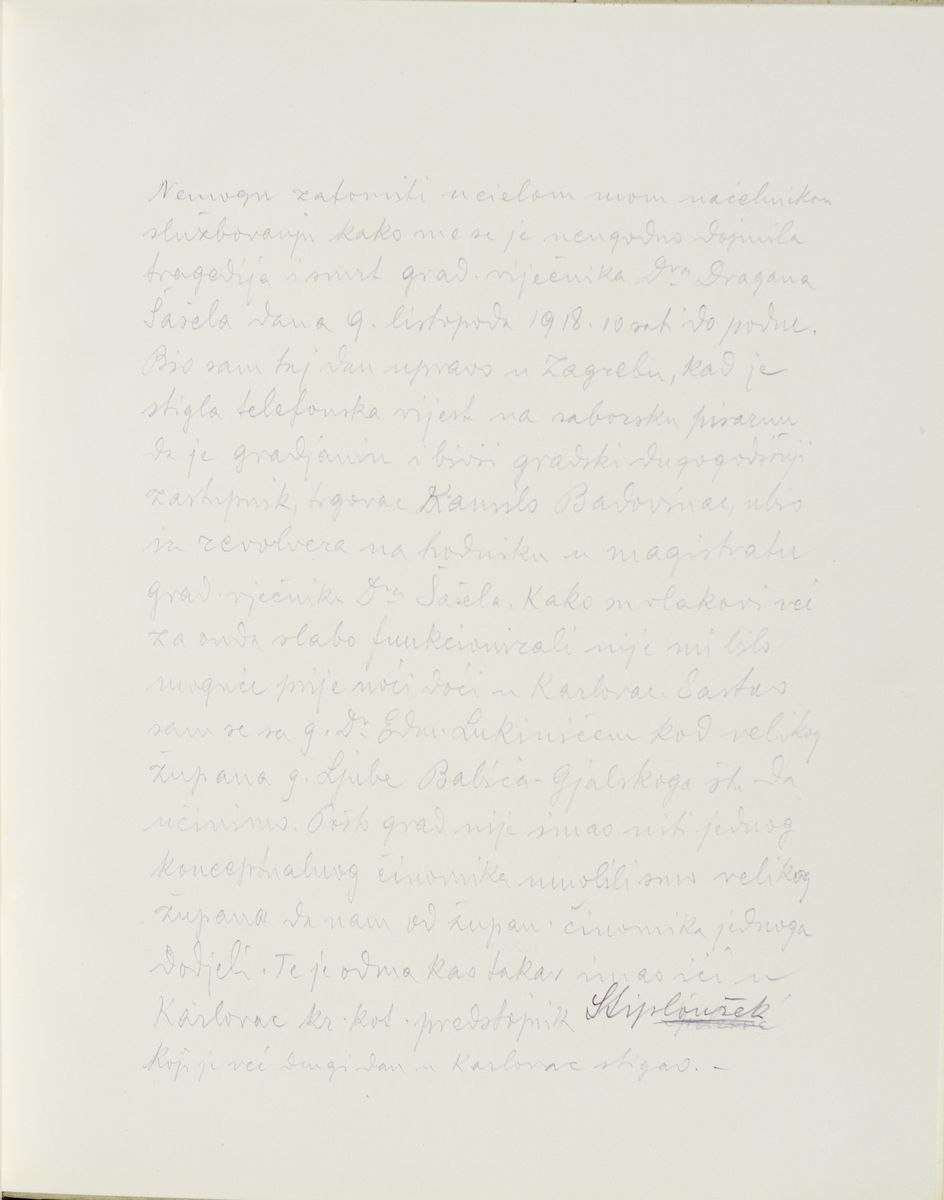 Nemogu zatomiti u cielom mom načelnikom
službovanju kako me se je neugodno dojmila
tragedija i smrt grad. viječnika Dra Dragana
Šašela dana 9. listopada 1918. 10 sati do podne.
Bio sam taj dan upravo u Zagrebu, kad je
stigla telefonska vijest na saborsku pisarnu
da je gradjanin i bivši gradski dugogodišnji
zastupnik, trgovac Kamilo Badovinac, ubio
iz revolvera na hodniku u magistratu
grad. vječnika Dra Šašela. Kako su vlakovi već
za onda slabo funkcionirali nije mi bilo
moguće prije noći doći u Karlovac. Sastao
sam se sa g. Dr. Edm. Lukinićem kod velikog
župana g. Ljube Babića-Gjalskoga šta da
učinimo. Pošto grad nije imao niti jednog
konceptualnog činovnika umolili smo velikog
župana da nam od župan. činovnika jednoga
dodjeli. Te je odma kao takav imao ići u
Karlovac kr. kot. predstojnik Stiploušek
koji je već drugi dan u Karlovac stigao. –